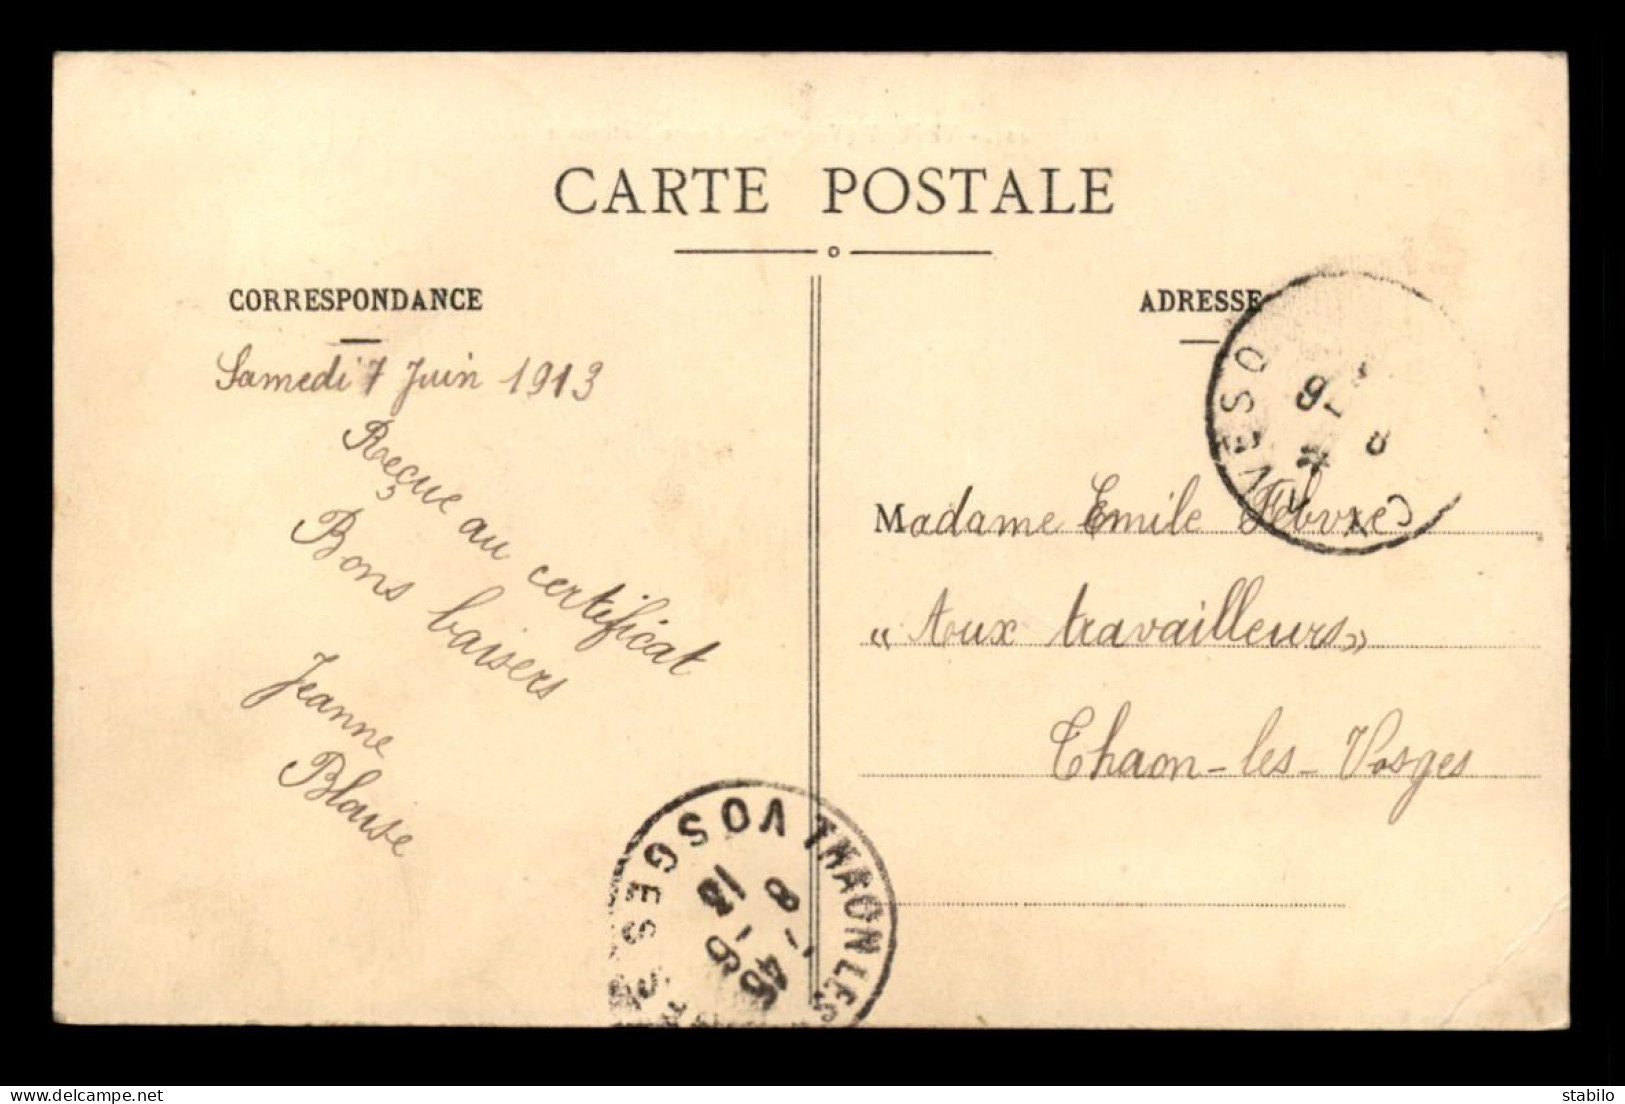 CARTE POSTALE
CORRESPONDANCE
Samedi 7 Juin 1913
Reçue au certificat
Bons baisers
Jeanne
Blaise
ADRESSE
Madame Emile Febvre
« Aux travailleurs »
Thaon-les-Vosges
THAON LES VOSGES
VOSGES
delcampe.net
stabilo